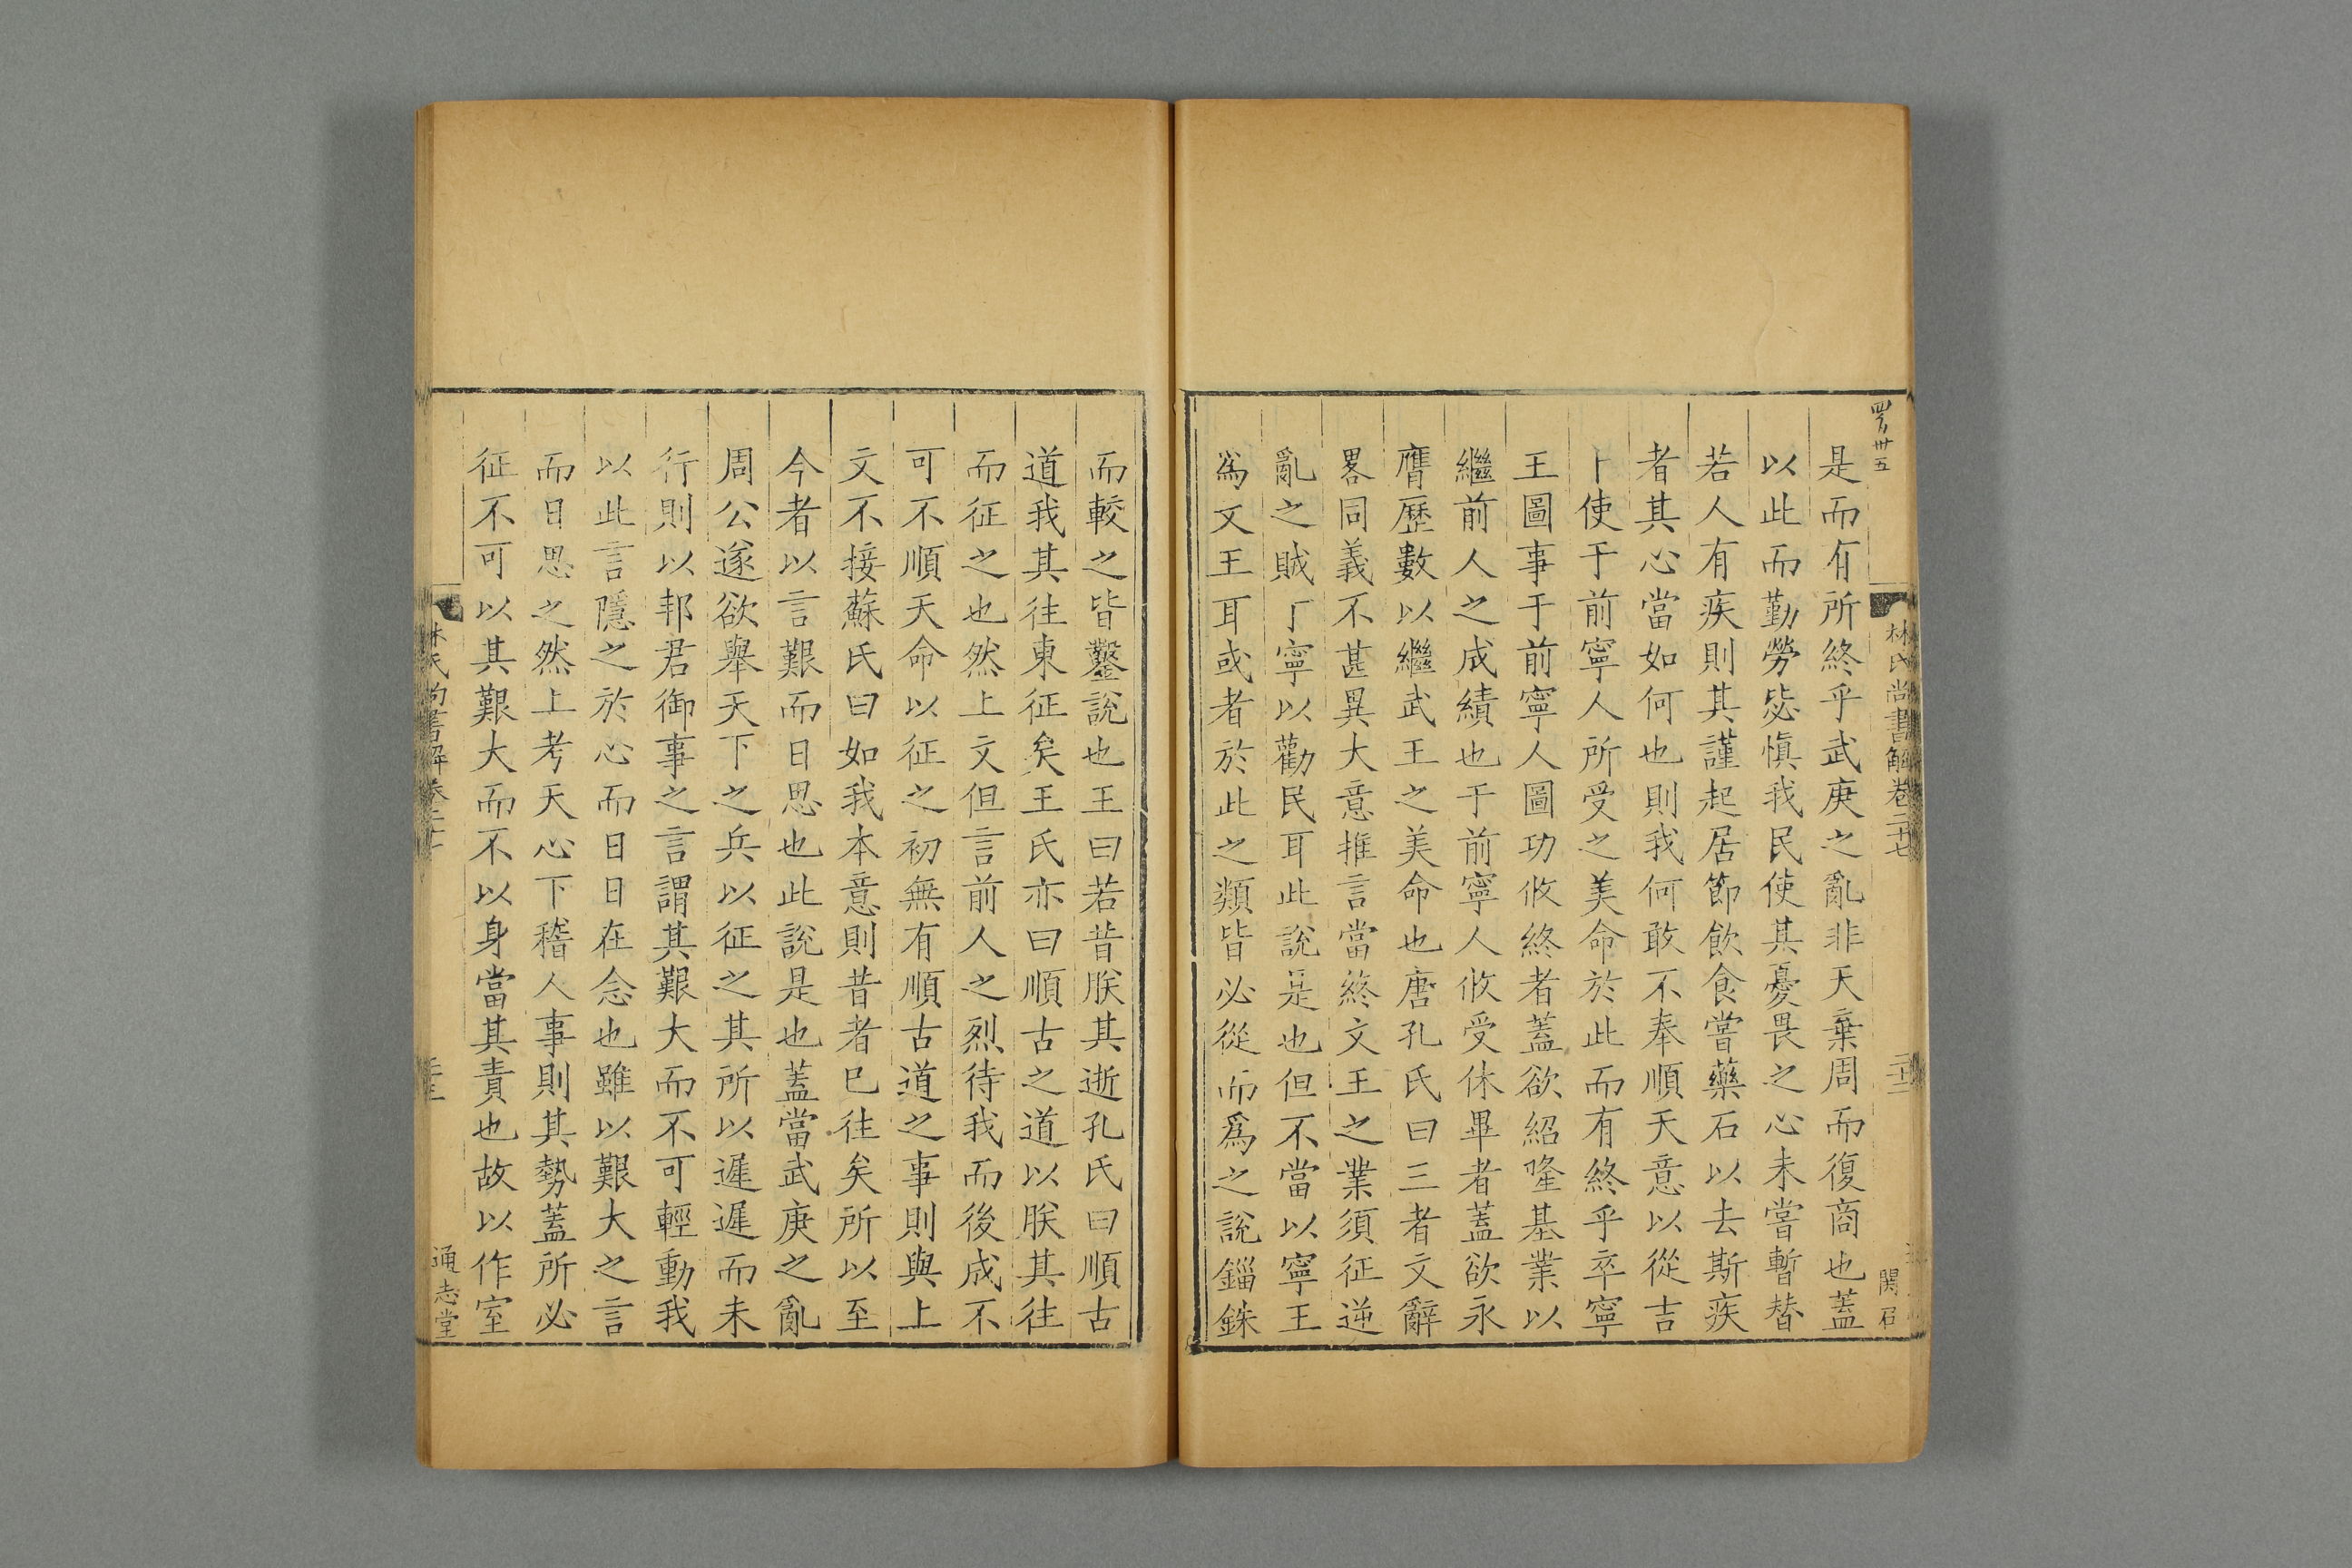 是而有所終乎武庚之亂非天棄周而復商也蓋
以此而勤勞毖慎我民使其憂畏之心未嘗暫替
若人有疾則其謹起居節飲食嘗藥石以去斯疾
者其心當如何也則我何敢不奉順天意以從吉
卜使于前寧人所受之美命於此而有終乎卒寧
王圖事于前寧人圖功攸終者蓋欲紹隆基業以
繼前人之成績也于前寧人攸受休畢者蓋欲永
膺歷數以繼武王之美命也唐孔氏曰三者文辭
畧同義不甚異大意推言當終文王之業須征逆
亂之賊丁寧以勸民耳此說是也但不當以寧王
爲文王耳或者於此之類皆必從而爲之說錙銖
而較之皆鑿說也王曰若昔朕其逝孔氏曰順古
道我其往東征矣王氏亦曰順古之道以朕其往
而征之也然上文但言前人之烈待我而後成不
可不順天命以征之初無有順古道之事則與上
文不接蘇氏曰如我本意則昔者已往矣所以至
今者以言艱而日思也此說是也蓋當武庚之亂
周公遂欲舉天下之兵以征之其所以遲遲而未
行則以邦君御事之言謂其艱大而不可輕動我
以此言隱之於心而日日在念也雖以艱大之言
而日思之然上考天心下稽人事則其勢蓋所必
征不可以其艱大而不以身當其責也故以作室
林氏尚書解卷二十七
通志堂